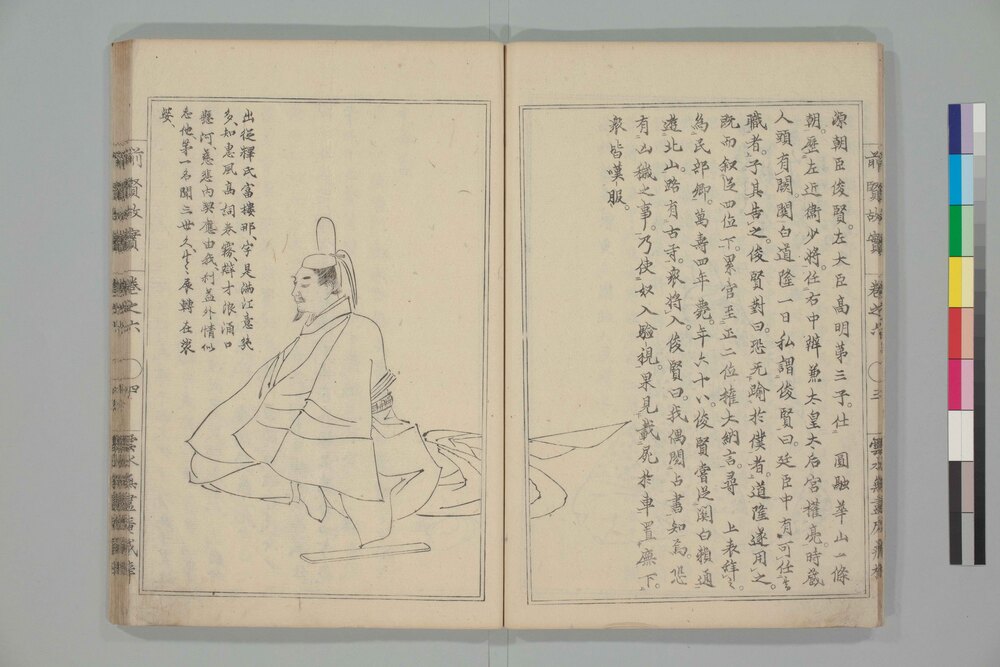 源朝臣俊賢。左大臣高明第三子。仕 圓融華山一條
朝。歷左近衞少將。任右中辨兼太皇大后宮權亮。時藏
人頭有闕。關白道隆一日私謂俊賢曰。廷臣中有可仕
職者。子其告之。俊賢對曰。恐无踰於僕者。道隆遂用之。
既而叙從四位下。累官至正二位權大納言。尋 上表辭之
為民部卿。萬壽四年薨。年六十八。俊賢嘗從關白賴通
遊北山。路有古寺。衆將入。俊賢曰。我偶閲占書知焉。恐
有山穢之事。乃使奴入驗視。果見載屍於車置廡下。
衆皆嘆服。
前賢故實 卷之六 三
出從釋氏富樓那、字是滿江意
多知惠風高詞卷霧、辯才浪涌口
懸河、慈悲内契應由我、利益外情似
忘他、第一名聞三世久、生々展轉在裟
婆、
前賢故實 卷之六 四